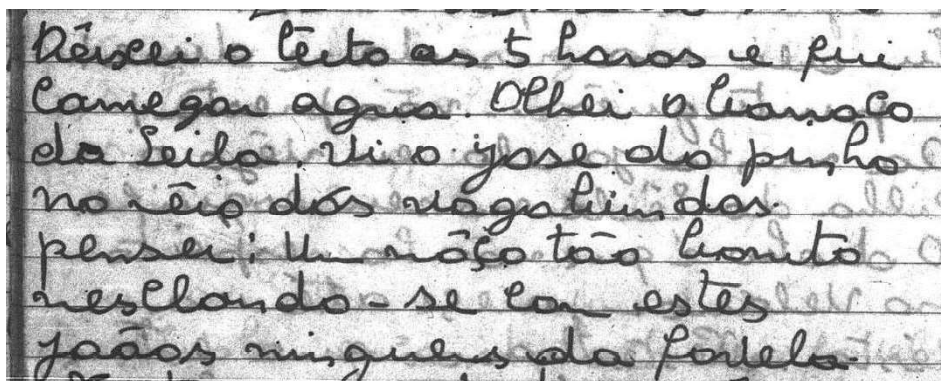 Dêixei o lêito as 5 horas e fui
Carregar agua. Olhei o barraco
da Leila. Vi o jose do pinho
no mêio dos vagabundos.
pensei: Um môço tão bonito
mesclando-se com estes
joãos ninguens da favela.